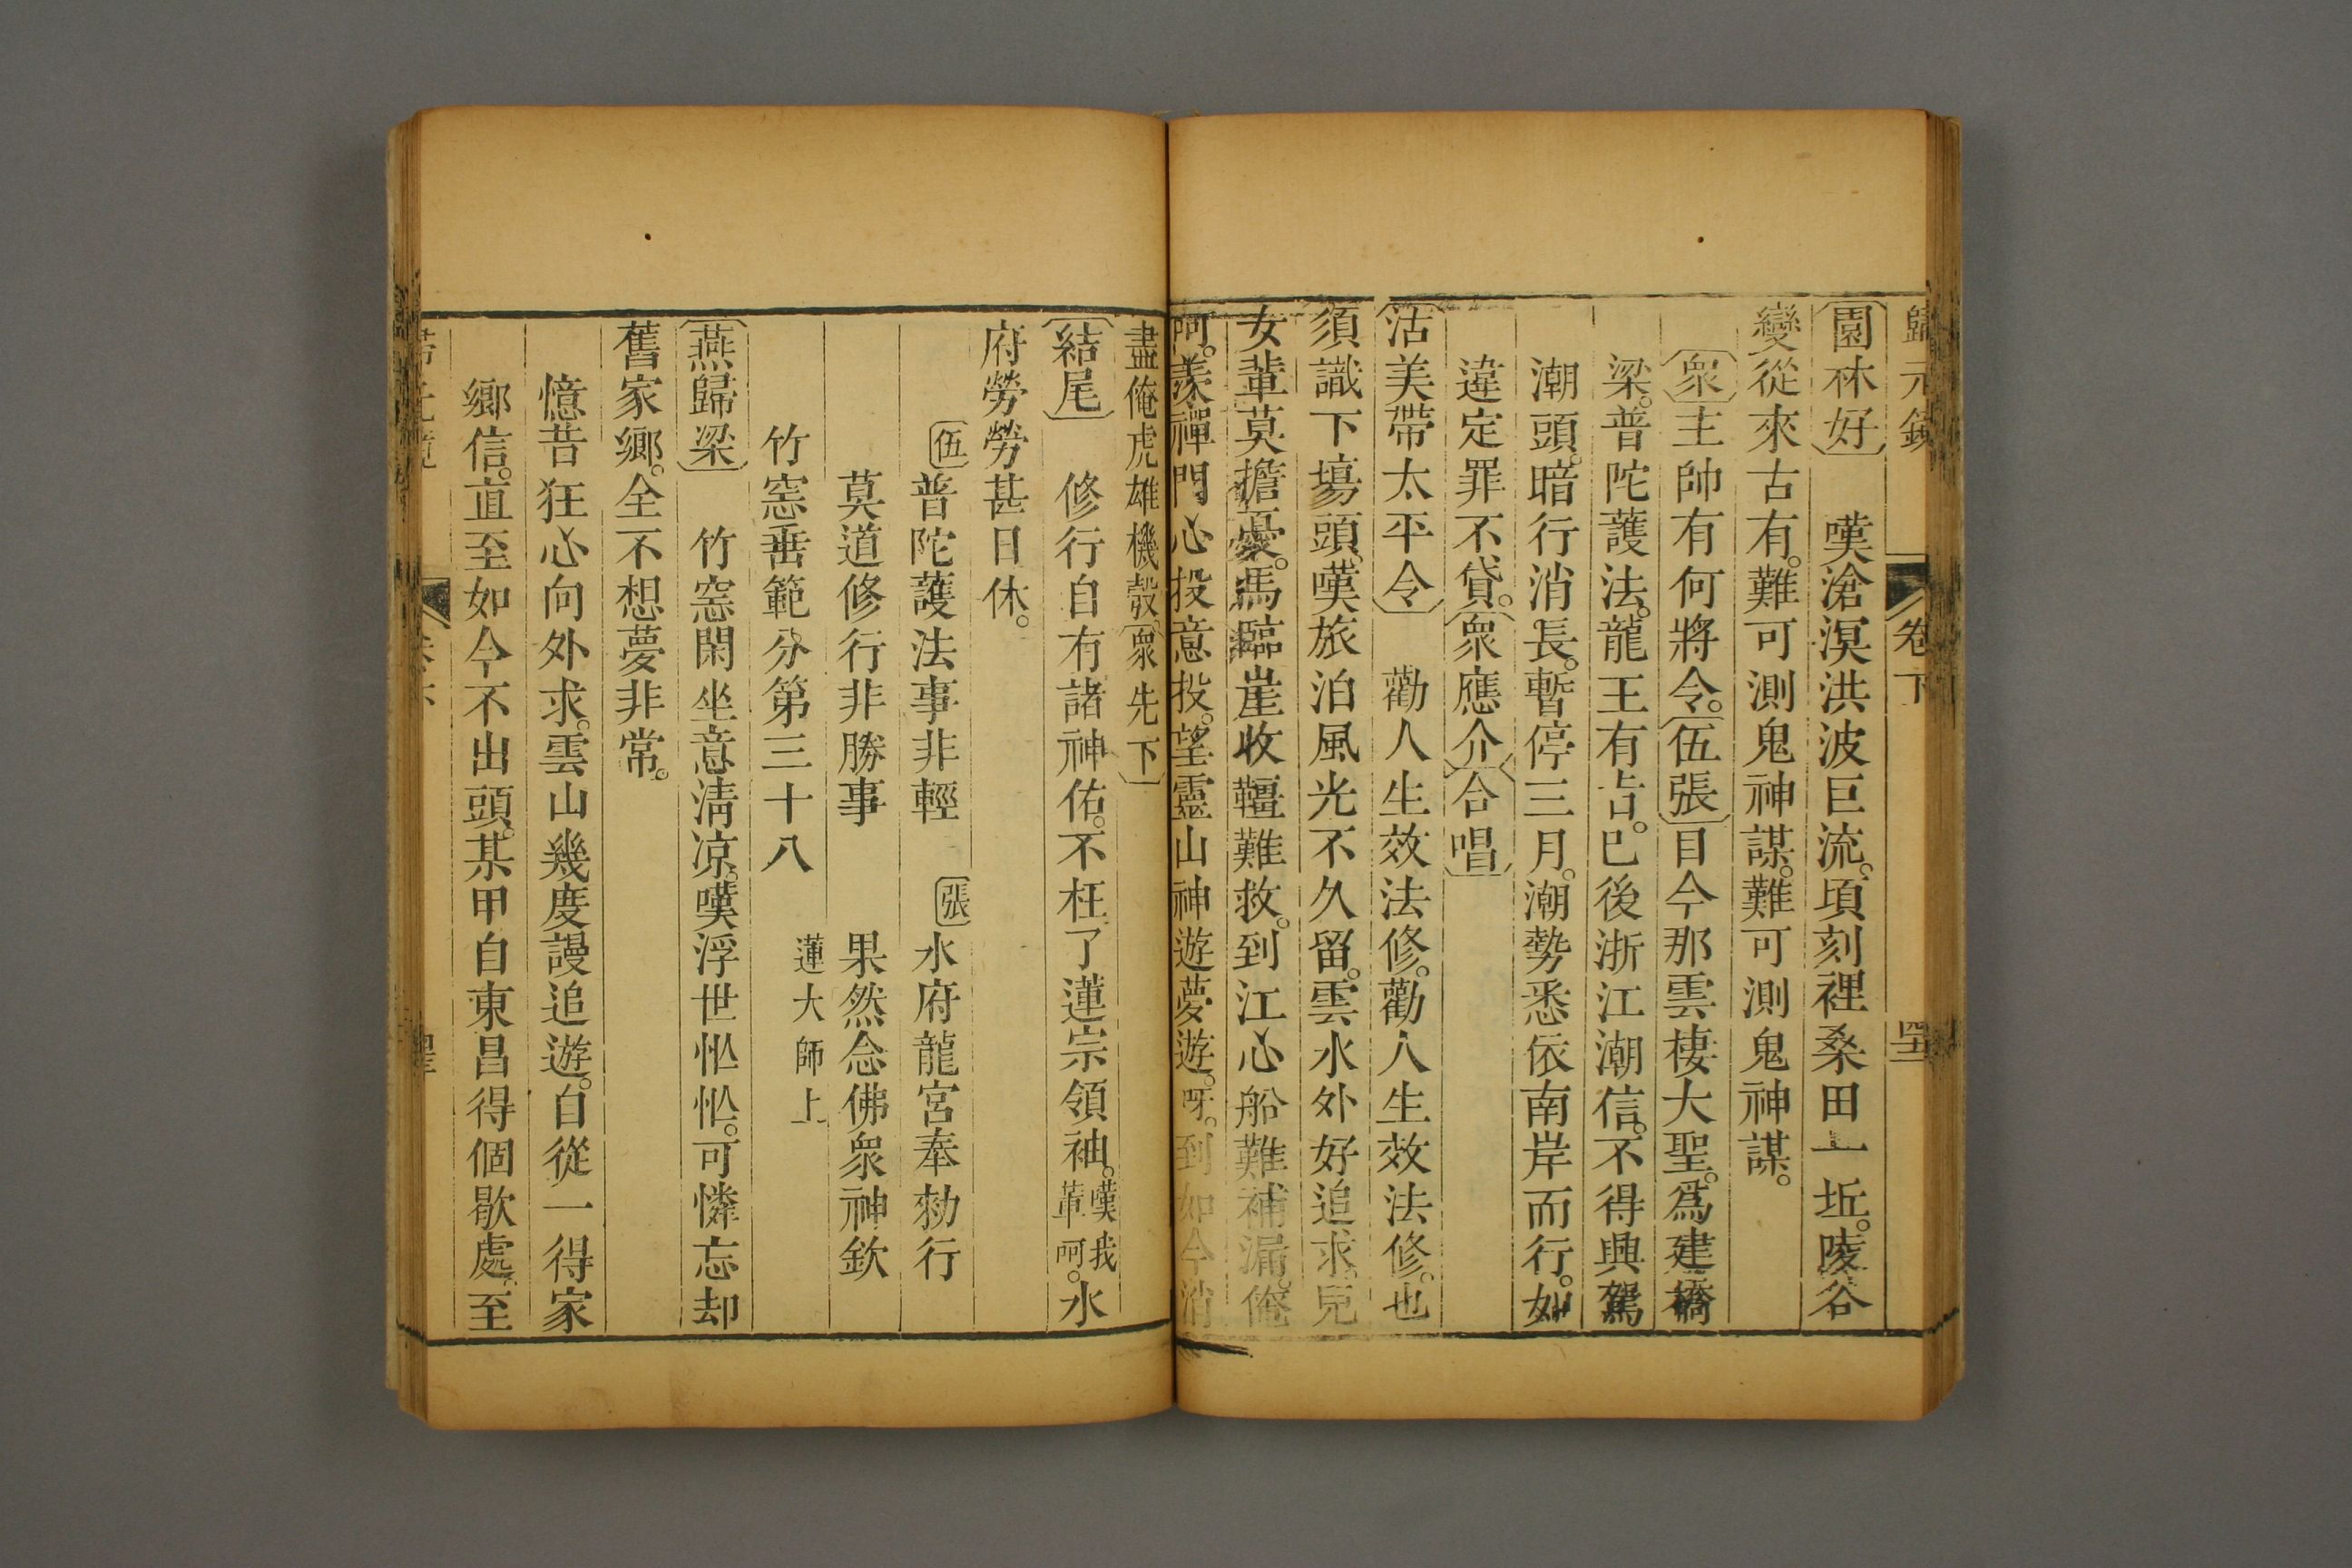 歸元鏡 卷下 四五
園林好 嘆滄溟洪波巨流。頃刻裡桑田一坵。陵谷
變從來古有。難可測鬼神謀。難可測鬼神謀。
衆主帥有何將令。伍張目今那雲棲大聖。爲建橋
梁。普陀護法。龍王有占。巳後浙江潮信。不得興駕
潮頭。暗行消長。暫停三月。潮勢悉依南岸而行。如
違定罪不貸。衆應介合唱
沽美帶太平令 勸人生效法修。勸人生效法修。也
須識下塲頭。嘆旅泊風光不久留。雲水外好追求。兒
女輩莫擔憂。馬臨崖收韁難救。到江心船難補漏。俺
呵。羨禪門心投意投。望靈山神遊夢遊。呀。到如今消
盡俺虎雄機彀。衆先下
結尾 修行自有諸神佑。不枉了蓮宗領袖。嘆我輩呵。水
府勞勞甚日休。
伍普陀護法事非輕 張水府龍宮奉勑行
莫道修行非勝事 果然念佛衆神欽
竹窓垂範分第三十八 蓮大師上
燕歸梁 竹窓閑坐意淸凉。嘆浮世忪忪。可憐忘却
舊家鄉。全不想夢非常。
憶昔狂心向外求。雲山幾度謾追遊。自從一得家
鄉信。直至如今不出頭。某甲自東昌得個歇處。至